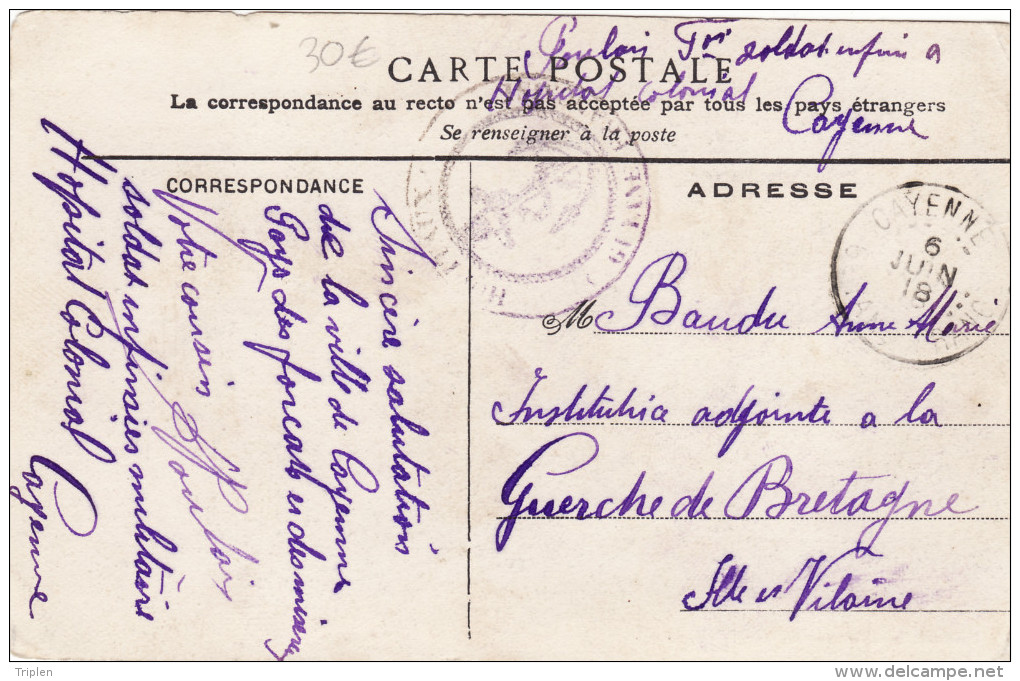 30€
Poulain Fr soldat infirm a
CARTE POSTALE
Hopital Colonial
La correspondance au recto n'est pas acceptée par tous les pays étrangers
Cayenne
Se renseigner à la poste
CORRESPONDANCE
Sincère salutations
de la ville de Cayenne
Pays des forcats et des misères
Votre cousin
soldat infirmies militaire
Hopital Colonial Cayenne
ADRESSE
CAYENNE
6
JUIN
18
M Baudu Anne Marie
Institutrice adjointe a la
Guerche de Bretagne
Ille et Vilaine
Triplen
delcampe.net